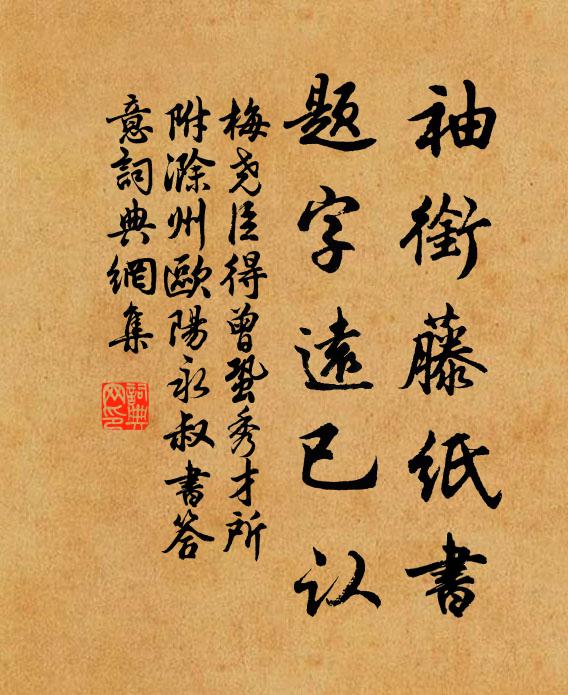 袖銜藤紙書
題字遠已认
梅尧臣得曾巩秀才所
附滁州歐陽永叔書答
意詞典網集
詞典
网印